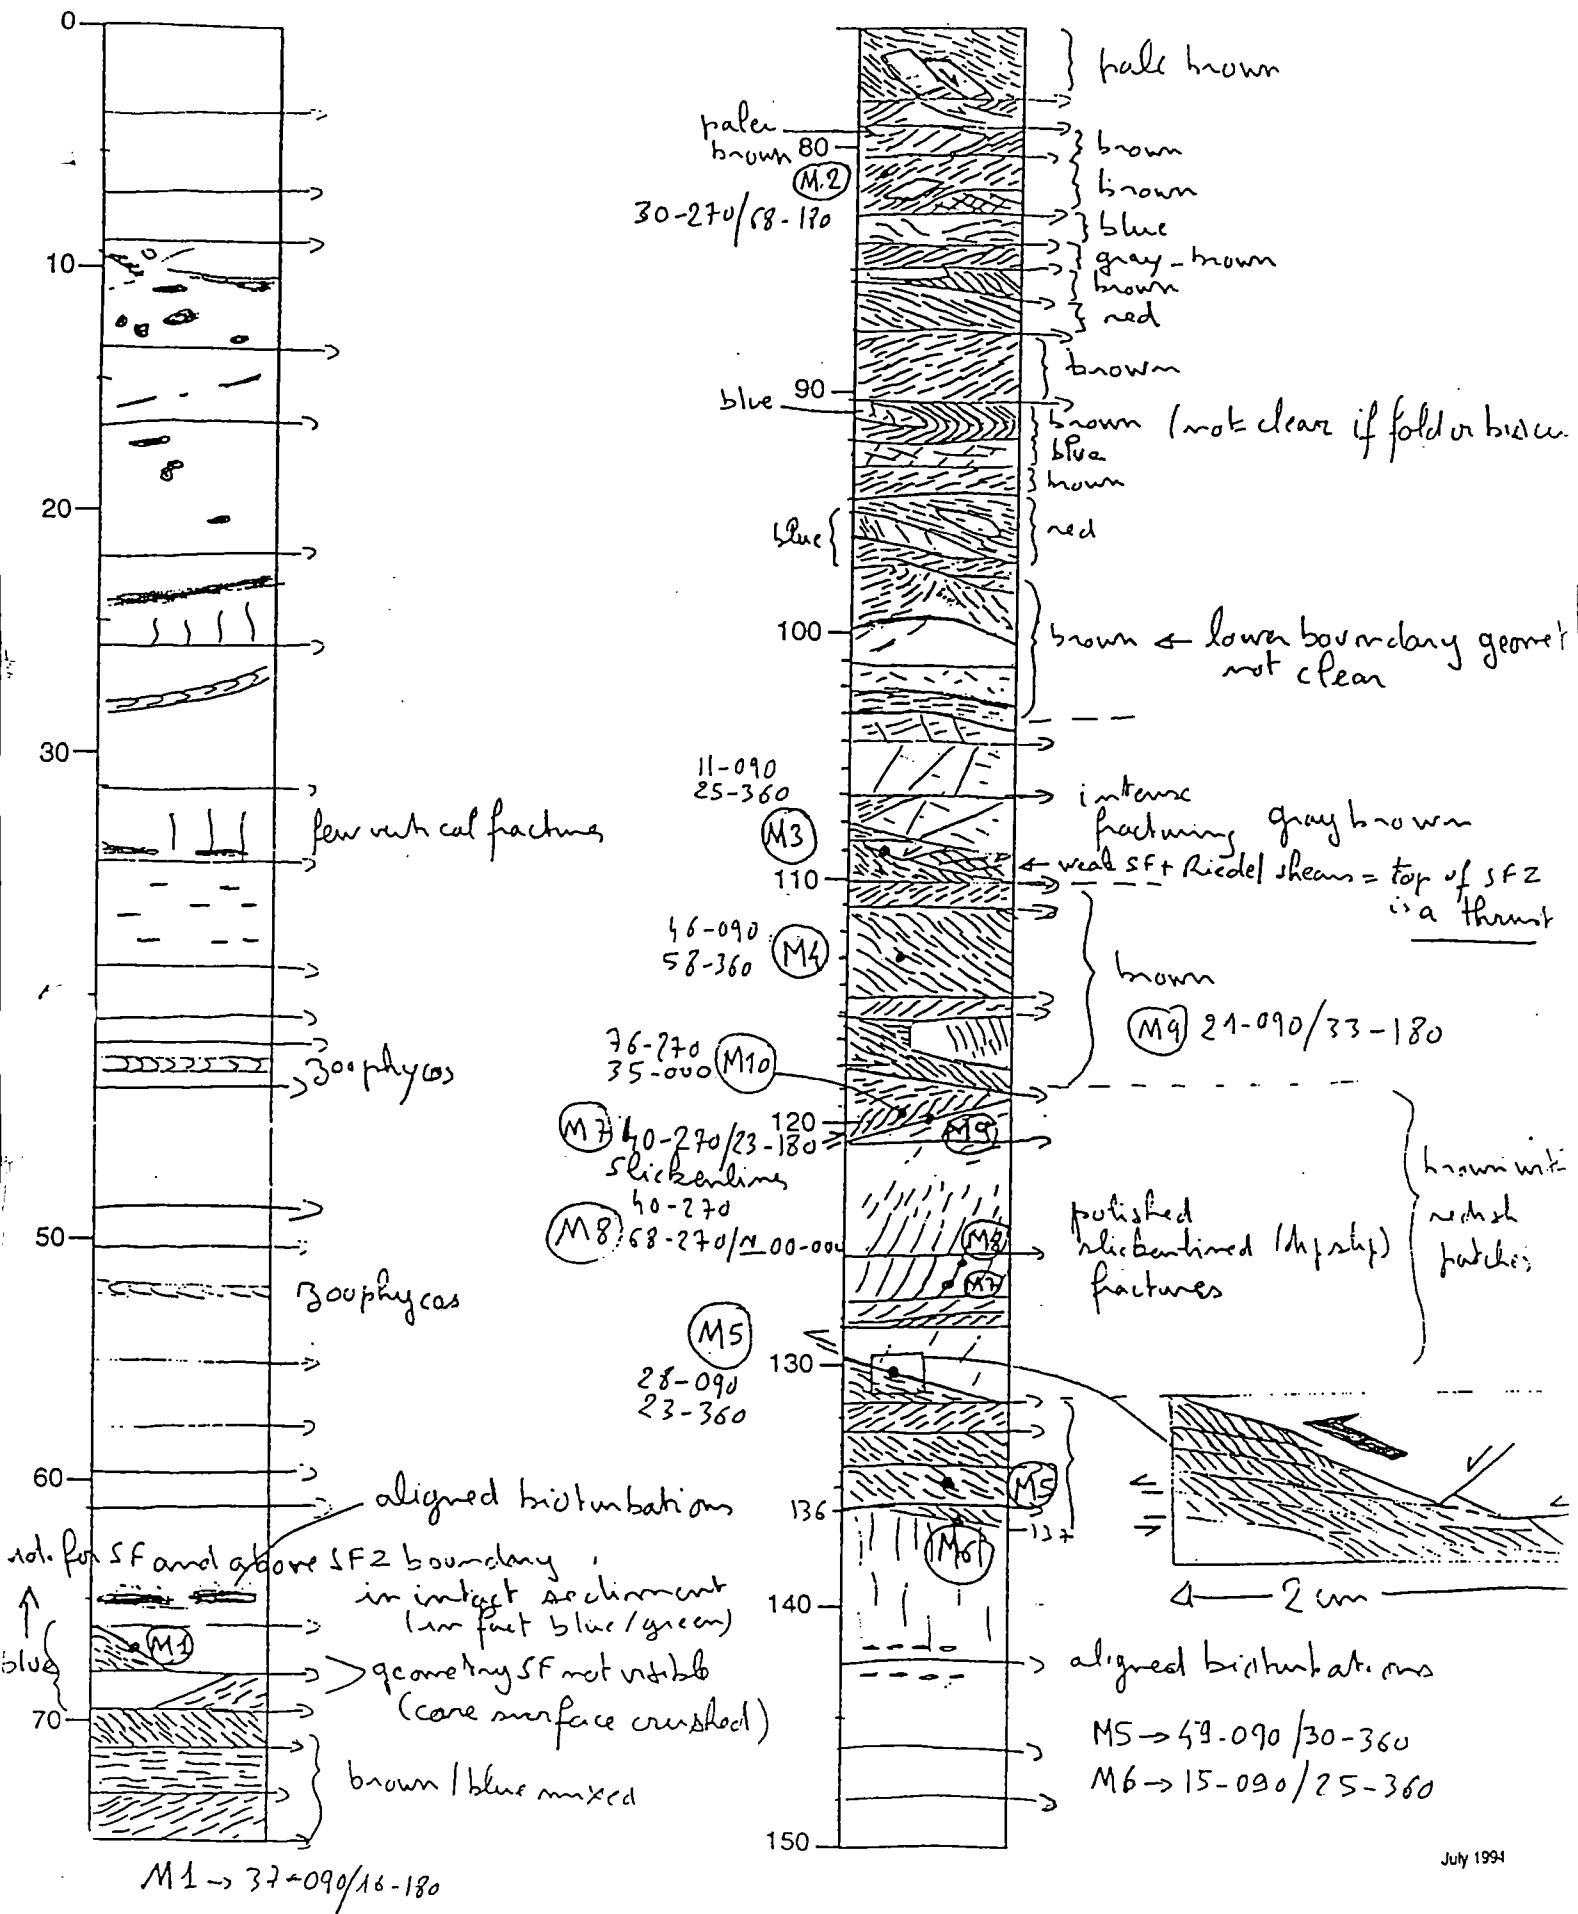 0
10
20
30
few vertical fractures
zoophycos
50
zoophycos
60
aligned bioturbations
for SF and above SFZ boundary
in intact sediment
(in fact blue/green)
M1
blue
geometry SF not visible
(core surface crushed)
70
brown / blue mixed
M1 → 37-090/16-180
pale brown
paler
brown
80
brown
M.2
brown
30-270/68-180
blue
gray-brown
brown
red
brown
90
blue
brown (not clear if fold or
blue
brown
blue
red
100
brown ← lower boundary
not clear
11-090
25-360
intense
fracturing
gray brown
M3
← weak SF + Riedel shears = top of SFZ
is a thrust
110
46-090
58-360
M4
brown
M9 21-090/33-180
76-270
35-000
M10
120
M7 40-270/23-180
M9
slickenlines
40-270
M8 68-270/N 00-000
M8
polished
slickenlined (dip slip)
fractures
brown
redish
patches
M7
M5
130
28-090
23-360
M5
136
137
M6
2 cm
140
aligned bioturbations
M5 → 49-090/30-360
M6 → 15-090/25-360
150
July 1994